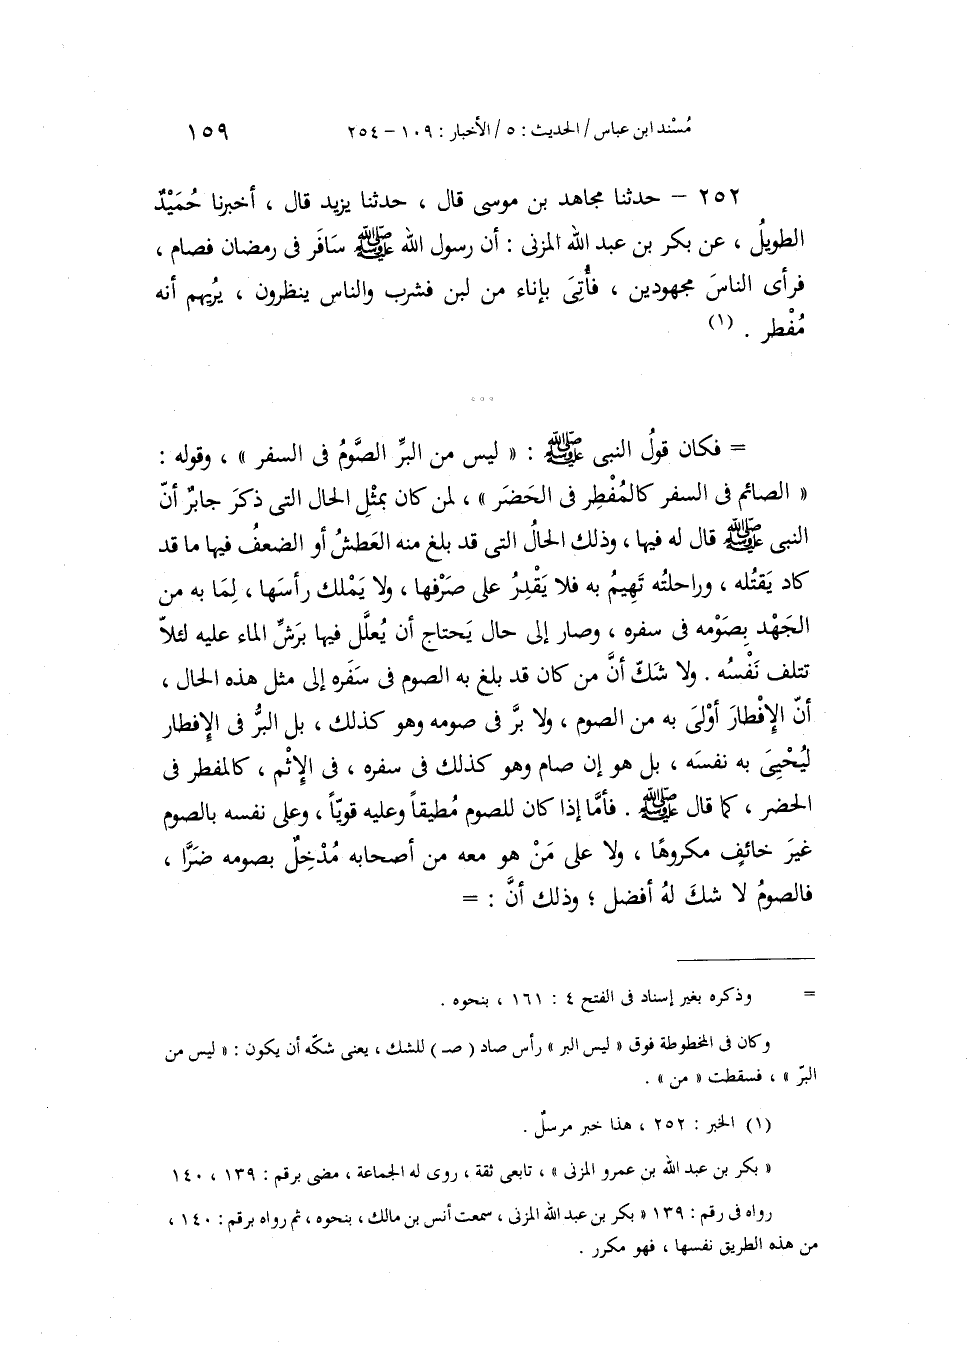 مُسْند ابن عباس / الحديث : ٥ / الأخبار : ١٠٩ – ٢٥٤ ١٥٩
٢٥٢ – حدثنا مجاهد بن موسى قال ، حدثنا يزيد قال ، أخبرنا حُمَيْدٌ
الطويلُ ، عن بكر بن عبد الله المزنى : أن رسول الله ﷺ سَافَر فى رمضان فصام ،
فرأى الناسَ مجهودين ، فأُتِىَ بإناء من لبن فشرب والناس ينظرون ، يُريهم أنه
مُفْطر . (١)
° ° °
= فكان قولُ النبى ﷺ : « ليس من البرِّ الصَّومُ فى السفر » ، وقوله :
« الصائم فى السفر كالمُفْطِر فى الحَضَر » ، لمن كان بمثْلِ الحال التى ذكرَ جابرٌ أنّ
النبى ﷺ قال له فيها ، وذلك الحالُ التى قد بلغ منه العَطشُ أو الضعفُ فيها ما قد
كاد يَقتُله ، وراحلتُه تَهِيمُ به فلا يَقْدِرُ على صَرْفها ، ولا يَمْلك رأسَها ، لِمَا به من
الجَهْد بِصَوْمه فى سفره ، وصار إلى حال يَحتاج أن يُعلَّل فيها بَرَشِّ الماء عليه لئلاّ
تتلف نَفْسُه . ولا شكّ أنَّ من كان قد بلغ به الصوم فى سَفَره إلى مثل هذه الحال ،
أنّ الإِفْطارَ أوْلىَ به من الصوم ، ولا برَّ فى صومه وهو كذلك ، بل البرُّ فى الإِفطار
لُيُحْيِىَ به نفسَه ، بل هو إن صام وهو كذلك فى سفره ، فى الإِثْم ، كالمفطر فى
الحضر ، كما قال ﷺ . فأمَّا إذا كان للصوم مُطيقاً وعليه قويّاً ، وعلى نفسه بالصوم
غيرَ خائفٍ مكروهًا ، ولا على مَنْ هو معه من أصحابه مُدْخِلٌ بصومه ضَرَّا ،
فالصومُ لا شكَ لهُ أفضل ؛ وذلك أنَّ : =
= وذكره بغير إسناد فى الفتح ٤ : ١٦١ ، بنحوه .
وكان فى المخطوطة فوق « ليس البر » رأس صاد ( صـ ) للشك ، يعنى شكّه أن يكون : « ليس من
البرّ » ، فسقطت « من » .
(١) الخبر : ٢٥٢ ، هذا خبر مرسلٌ .
« بكر بن عبد الله بن عمرو المزنى » ، تابعى ثقة ، روى له الجماعة ، مضى برقم : ١٣٩ ، ١٤٠
رواه فى رقم : ١٣٩ « بكر بن عبد الله المزنى ، سمعت أنس بن مالك ، بنحوه ، ثم رواه برقم : ١٤٠ ،
من هذه الطريق نفسها ، فهو مكرر .